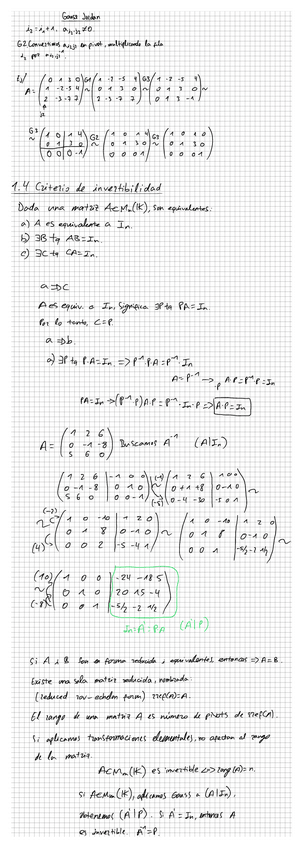 Gauss Jordan
G2 Convertimos en pivot, multiplicando la fila
i₂ por
A = ( 0 1 3 0 / 1 -2 -5 4 / 2 -3 -7 7 ) G1 ~ ( 1 -2 -5 4 / 0 1 3 0 / 2 -3 -7 7 ) G3 ~ ( 1 -2 -5 4 / 0 1 3 0 / 0 1 3 -1 )
G3 ~ ( 1 0 1 4 / 0 1 3 0 / 0 0 0 -1 ) G2 ~ ( 1 0 1 4 / 0 1 3 0 / 0 0 0 1 ) G3 ~ ( 1 0 1 0 / 0 1 3 0 / 0 0 0 1 )
1.4 Criterio de invertibilidad
Dada una matriz A∈Mn(K), son equivalentes:
a) A es equivalente a In.
b) ∃B tq AB=In.
c) ∃C tq CA=In.
a⇒c
A es equiv. a In, significa ∃P tq PA=In
Por lo tanto, C=P.
a ⇒ b.
a) ∃P tq P·A=In => P⁻¹·P·A=P⁻¹·In
A=P⁻¹ → A·P=P⁻¹·P=In
PA=In → (P⁻¹·P)A·P=P⁻¹·In·P => A·P=In
A = ( 1 2 6 / 0 -1 -8 / 5 6 0 ) Buscamos A⁻¹ (A|In)
( 1 2 6 | 1 0 0 / 0 -1 -8 | 0 1 0 / 5 6 0 | 0 0 1 ) (-1) (-5) ~ ( 1 2 6 | 1 0 0 / 0 +1 +8 | 0 -1 0 / 0 -4 -30 | -5 0 1 ) ~
(-2) (4) ~ ( 1 0 -10 | 1 2 0 / 0 1 8 | 0 -1 0 / 0 0 2 | -5 -4 1 ) ~ ( 1 0 -10 | 1 2 0 / 0 1 8 | 0 -1 0 / 0 0 1 | -5/2 -2 1/2 ) ~
(10) (-8) ~ ( 1 0 0 | -24 -18 5 / 0 1 0 | 20 15 -4 / 0 0 1 | -5/2 -2 1/2 )
In=A'=PA (A'|P)
Si A i B son en forma reducida i equivalentes, entonces => A=B.
Existe una sola matriz reducida, nombrada:
(reduced row-echelon form) rref(A)=A.
El rango de una matriz A es número de pivots de rref(A).
Si aplicamos transformaciones elementales, no afectan al rango
de la matriz.
A∈Mn(K) es invertible <=> rang(A)=n.
Si A∈Mn(K), aplicamos Gauss a (A|In),
obtenemos (A'|P). Si A'=In, entonces A
es invertible. A⁻¹=P.